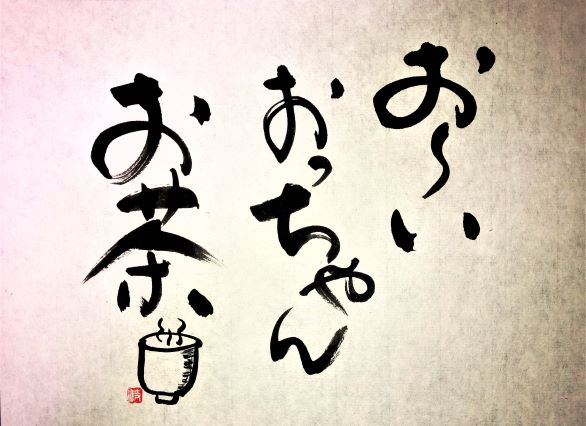 お〜い
おっちゃん
お茶